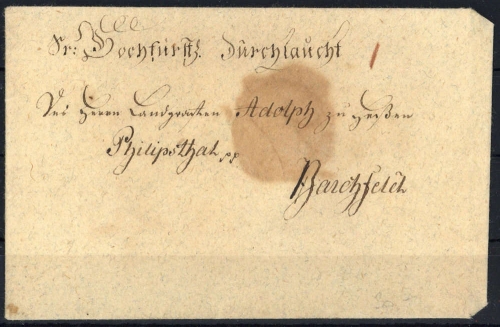 Sr: Hochfürstl. Durchlaucht
Des Herrn Landgrafen Adolph zu Heßen
Philipsthal pp
Barchfeld